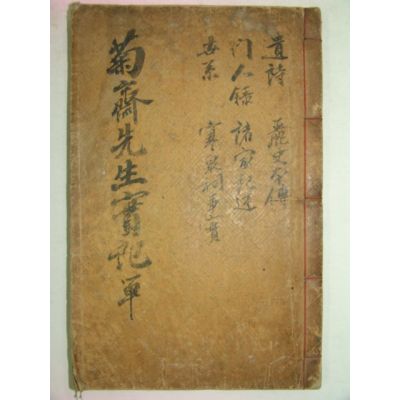 遺詩 麗史本傳
门人錄 諸家記述
世系 寒泉祠事實
菊齋先生實記單